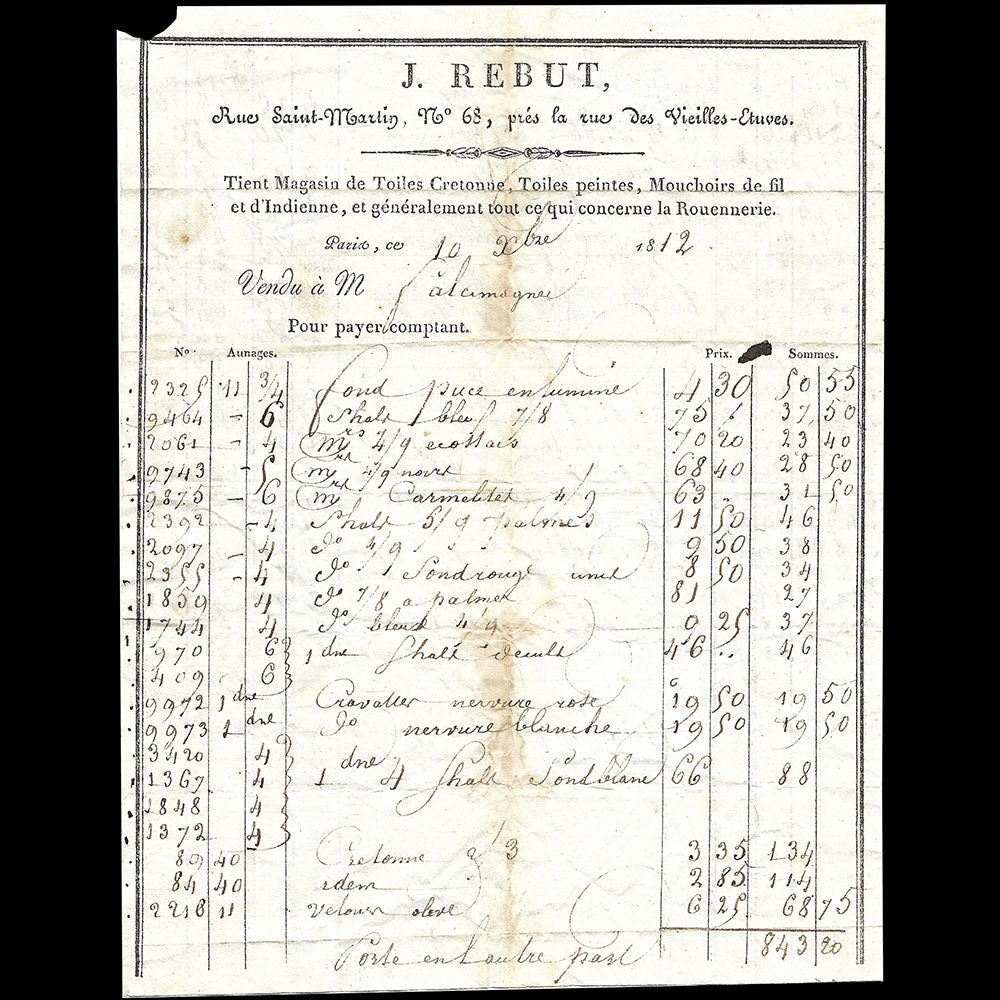 J. REBUT,
Rue Saint-Martin, N° 68, prés la rue des Vieilles-Etuves.
Tient Magasin de Toiles Cretonne, Toiles peintes, Mouchoirs de fil
et d'Indienne, et généralement tout ce qui concerne la Rouennerie.
Paris, ce 10 Xbre 1812
Vendu à M
Pour payer comptant.
N° Aunages. Prix. Sommes.
2325 11 3/4 fond puce enluminé 4 30 50 55
9464 - 6 Shals bleu 7/8 75 37 50
2061 - 4 Mrs 4/9 ecossais 70 20 23 40
9743 - 5 Mrs 4/9 noirs 68 40 28 50
9875 - 6 Mrs Carmelites 4/9 63 . 31 50
2392 - 4 Shals 5/9 palmes 11 50 46
2097 - 4 do 4/9 9 50 38
2355 - 4 do fond rouge unis 8 50 34
1859 4 do 7/8 a palmes 81 27
1744 4 do bleus 4/9 9 25 37
970 6 1 dne Shals 46 .. 46
409 6
9972 1 dne Cravattes nervure rose 19 50 19 50
9973 1 dne do nervure blanche 19 50 19 50
3420 4
1367 4 1 dne 4 Shals fond blanc 66 88
1848 4
1372 4
89 40 Cretonne 2/3 3 35 134
84 40 idem 2 85 114
2216 11 velours olive 6 25 68 75
843 20
Porte en l'autre part